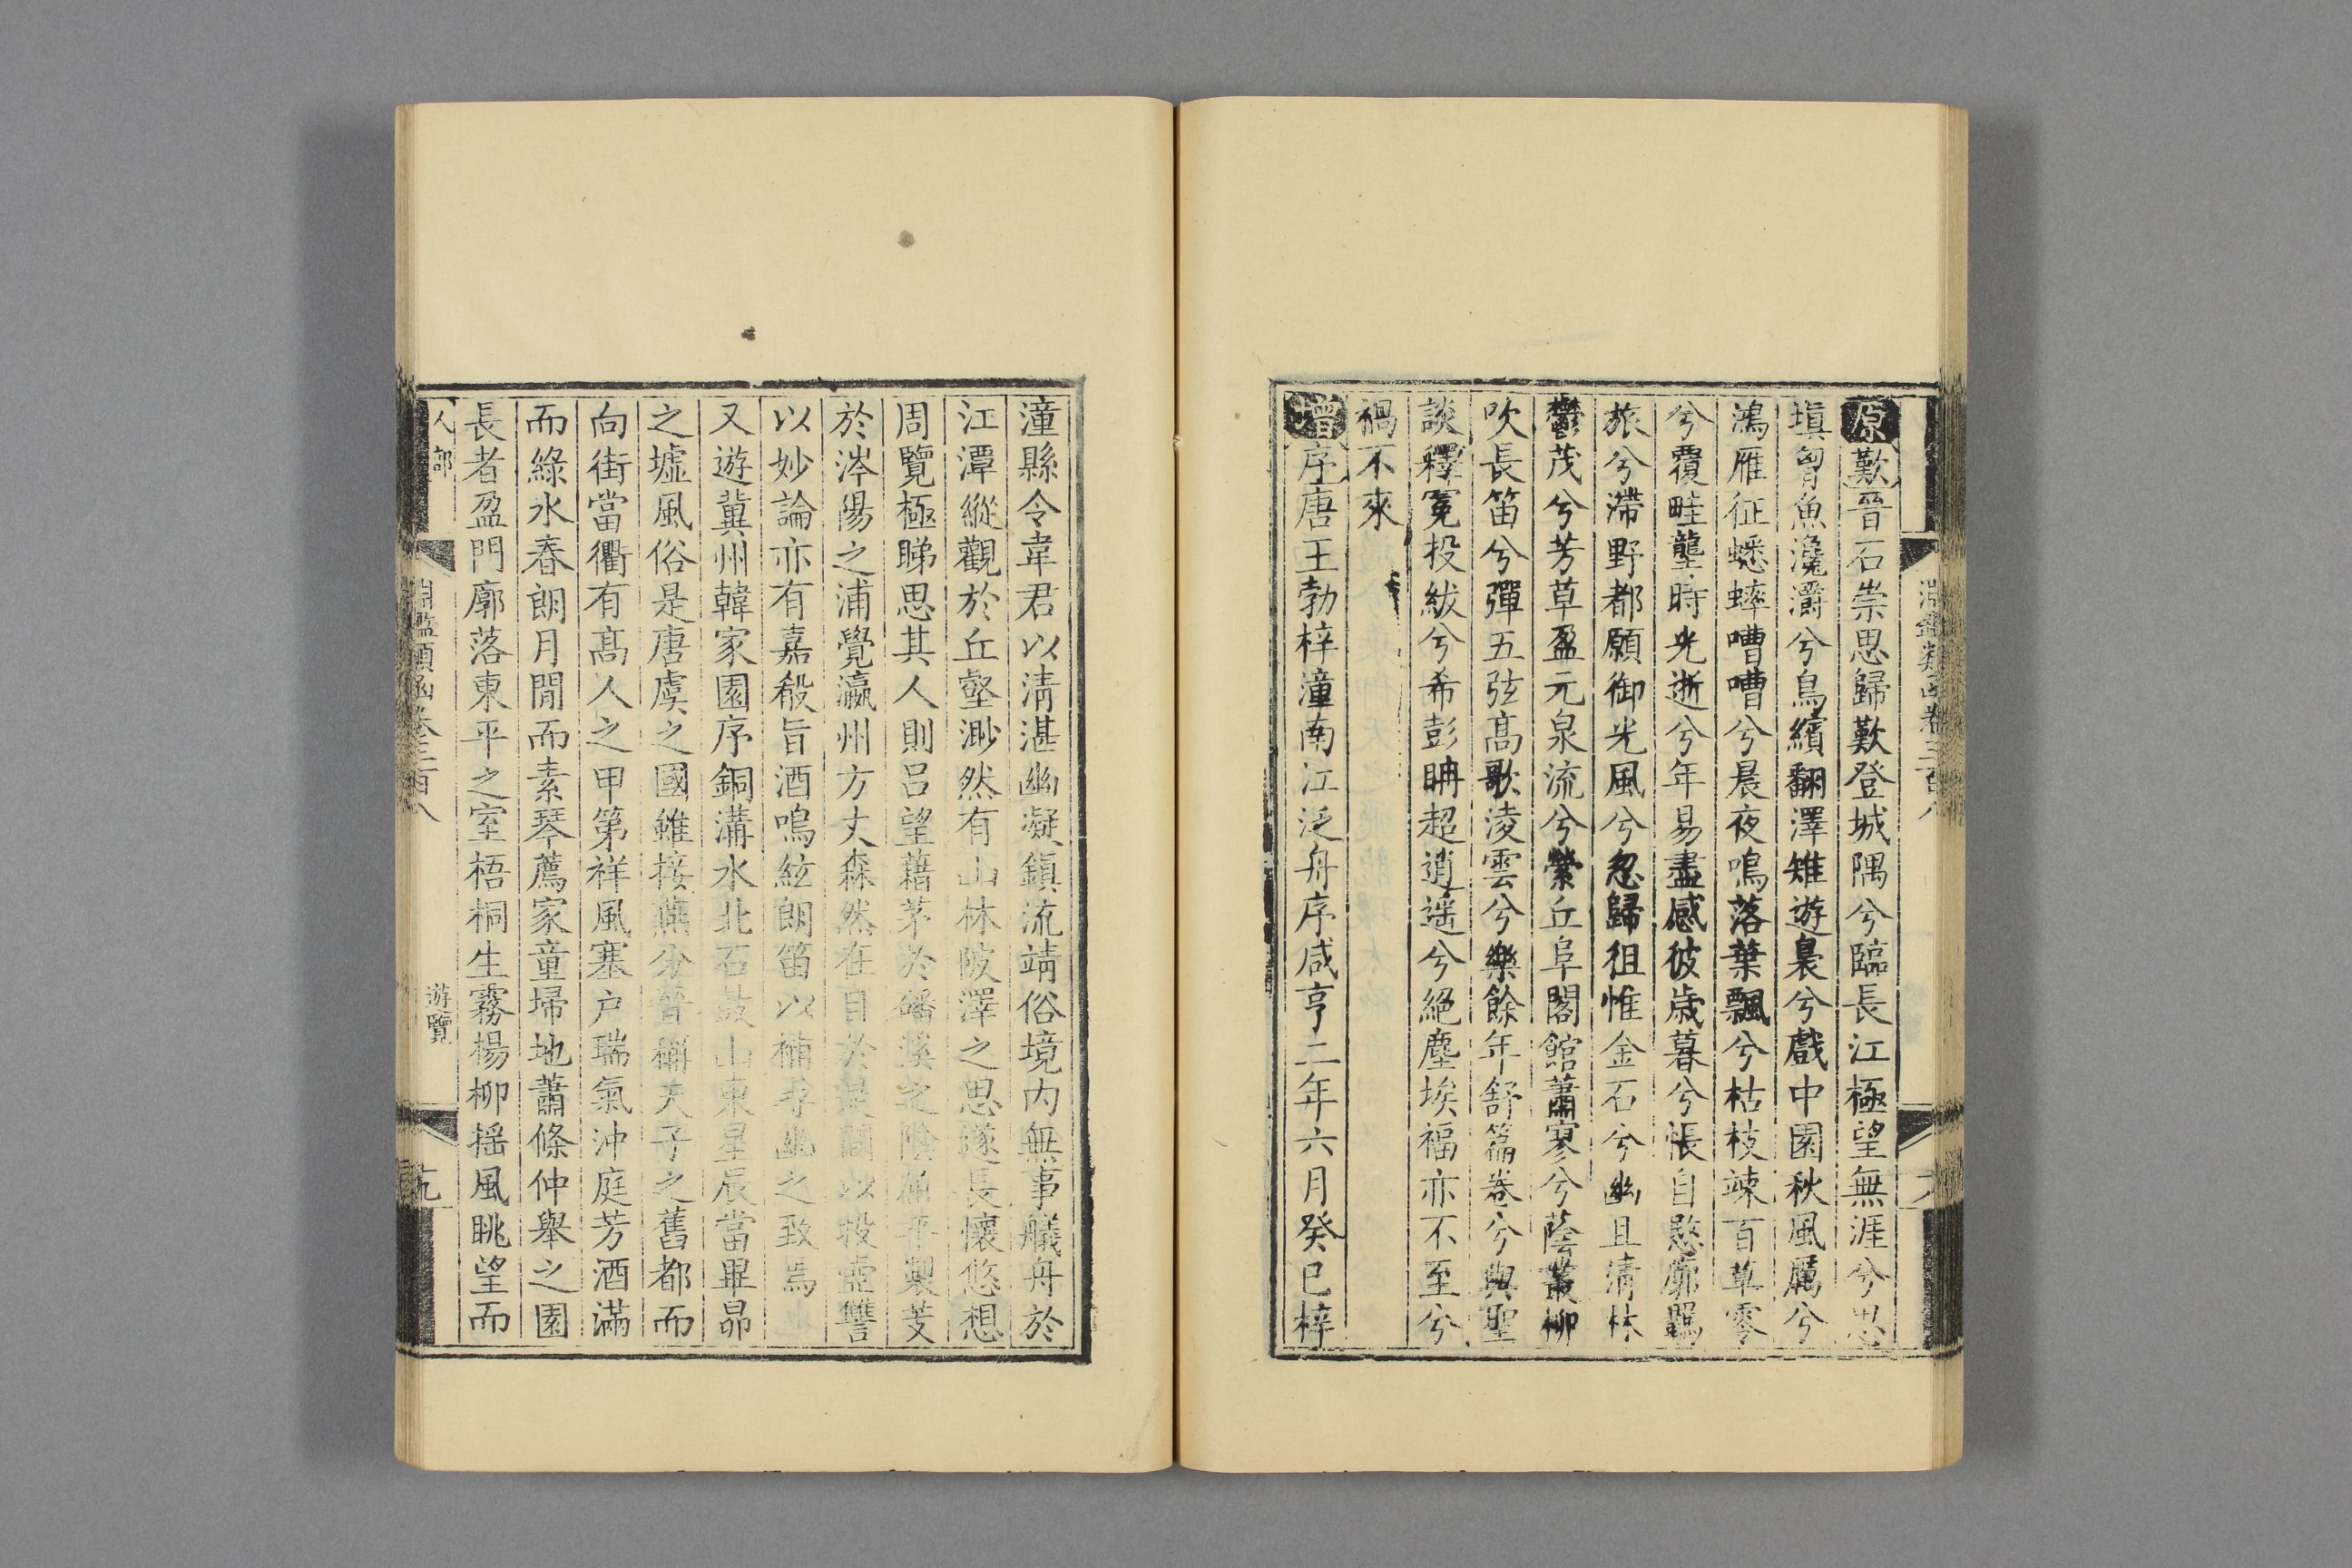 原歎晉石崇思歸歎登城隅兮臨長江極望無涯兮思
塡胷魚瀺灂兮鳥繽翻澤雉遊裊兮戲中園秋風厲兮
鴻雁征蟋蟀嘈嘈兮晨夜鳴落葉飄兮枯枝竦百草零
兮覆畦壟時光逝兮年易盡感彼歲暮兮悵自愍廓羈
旅兮滯野都願御光風兮忽歸徂惟金石兮幽且清林
鬱茂兮芳草盈元泉流兮縈丘阜閣館蕭寥兮蔭叢柳
吹長笛兮彈五弦高歌淩雲兮樂餘年舒篇卷兮與聖
談釋冕投紱兮希彭聃超逍遥兮絕塵埃福亦不至兮
禍不來
增序唐王勃梓潼南江泛舟序咸亨二年六月癸巳梓
淵鑑類函卷三百八
潼縣令韋君以清湛幽凝鎮流靖俗境内無事艤舟於
江潭縱觀於丘壑渺然有山林陂澤之思遂長懷悠想
周覽極睇思其人則呂望藉茅於磻溪之陰屈平製芰
於涔陽之浦覺瀛州方丈森然在目於是間以投壺讐
以妙論亦有嘉殽旨酒鳴絃朗笛以補尋幽之致焉
又遊冀州韓家園序銅溝水北石鼓山東星辰當畢昴
之墟風俗是唐虞之國雖接燕分晉稱天子之舊都而
向街當衢有高人之甲第祥風塞户瑞氣沖庭芳酒滿
而綠水春朗月閒而素琴薦家童掃地蕭條仲舉之園
長者盈門廓落東平之室梧桐生霧楊柳揺風眺望而
人部
淵鑑類函卷三百八
遊覽